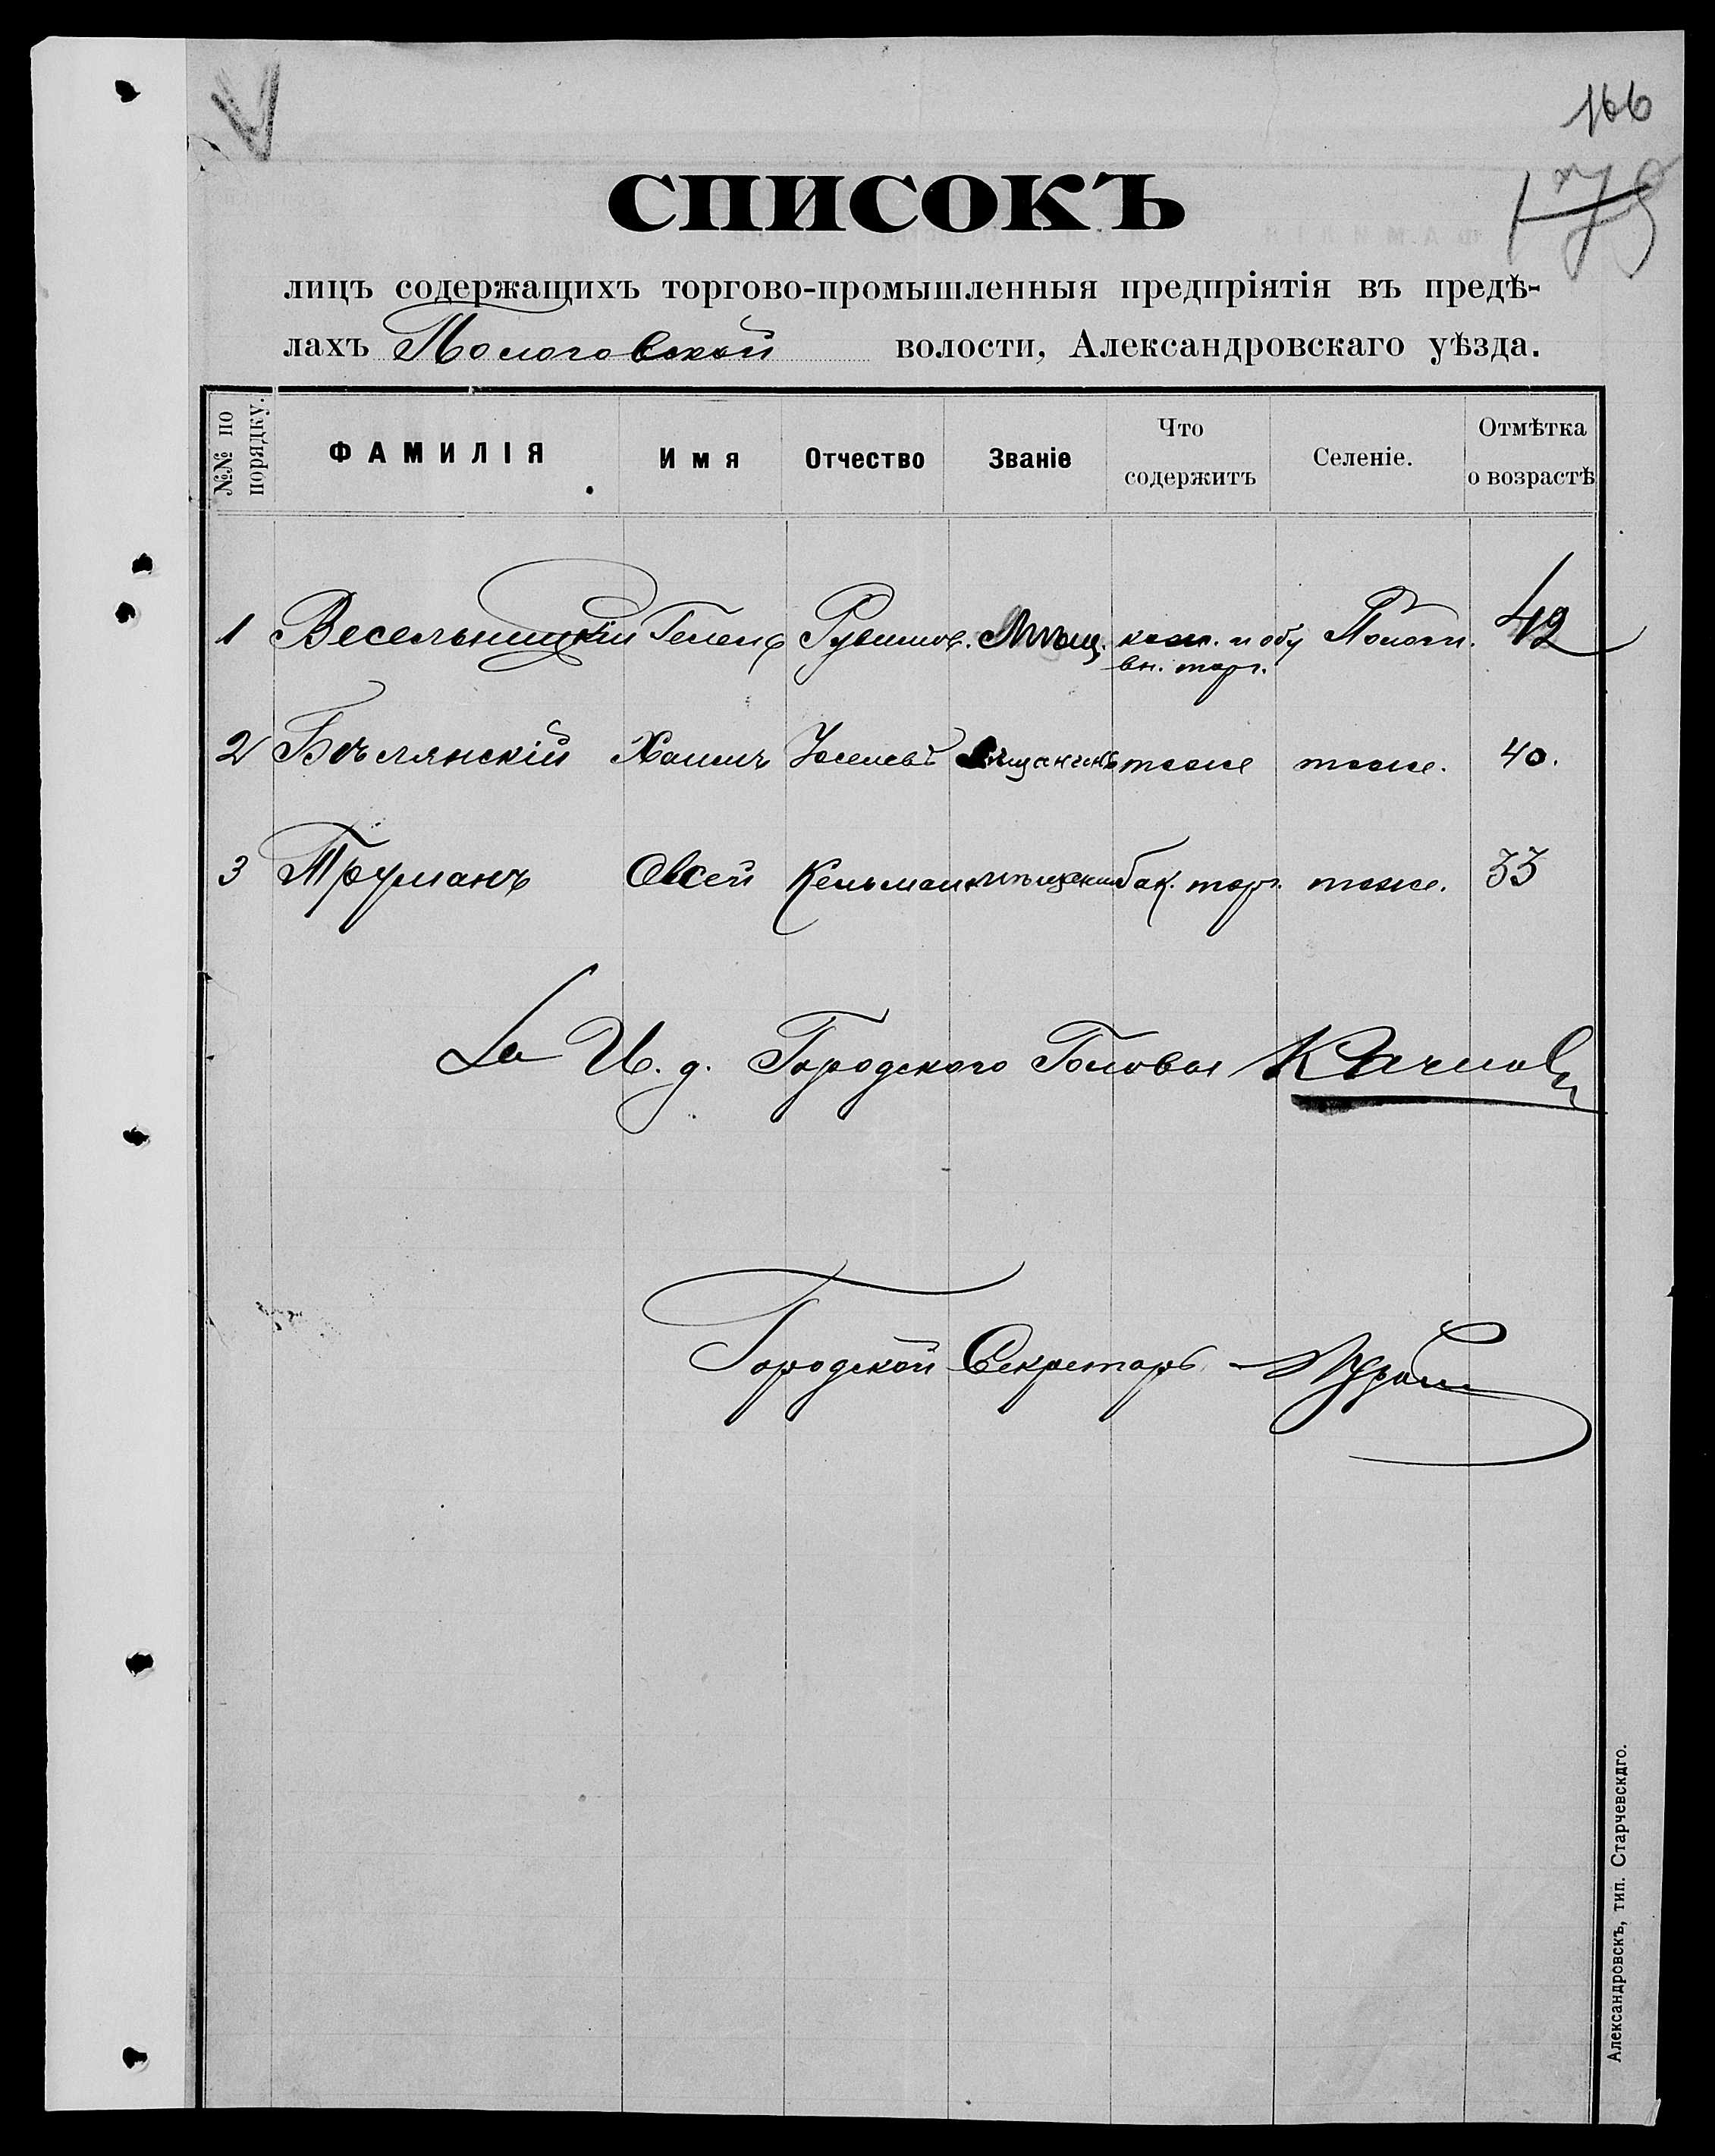 166
СПИСОКЪ
лицъ содержащихъ торгово-промышленныя предпріятія въ предѣ-
лахъ Пологовской волости, Александровскаго уѣзда.
№№ по порядку. ФАМИЛІЯ Имя Отчество Званіе Что содержитъ Селеніе. Отмѣтка о возрастѣ
1 Весельницкій Рувимов. Мѣщ. кож. и обу Пологи. 42
вн. торг.
2 Бѣлянскій Хаимъ Іоселевъ мѣщанинъ тоже тоже. 40.
3 Труманъ Овсей Кельман мѣщанин бак. торг. тоже. 33
За И. д. Городского Головы
Городской Секретарь
Александровскъ, тип. Старчевскдго.